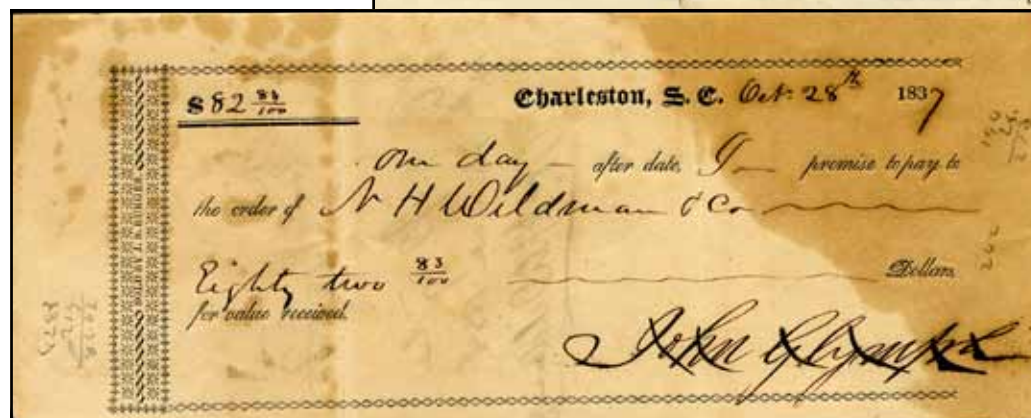 $ 82 83/100
Charleston, S. C. Oct. 28th 1837
One day after date, I promise to pay to
the order of N H Wildman & Co
Eighty two 83/100 Dollars,
for value received.
John